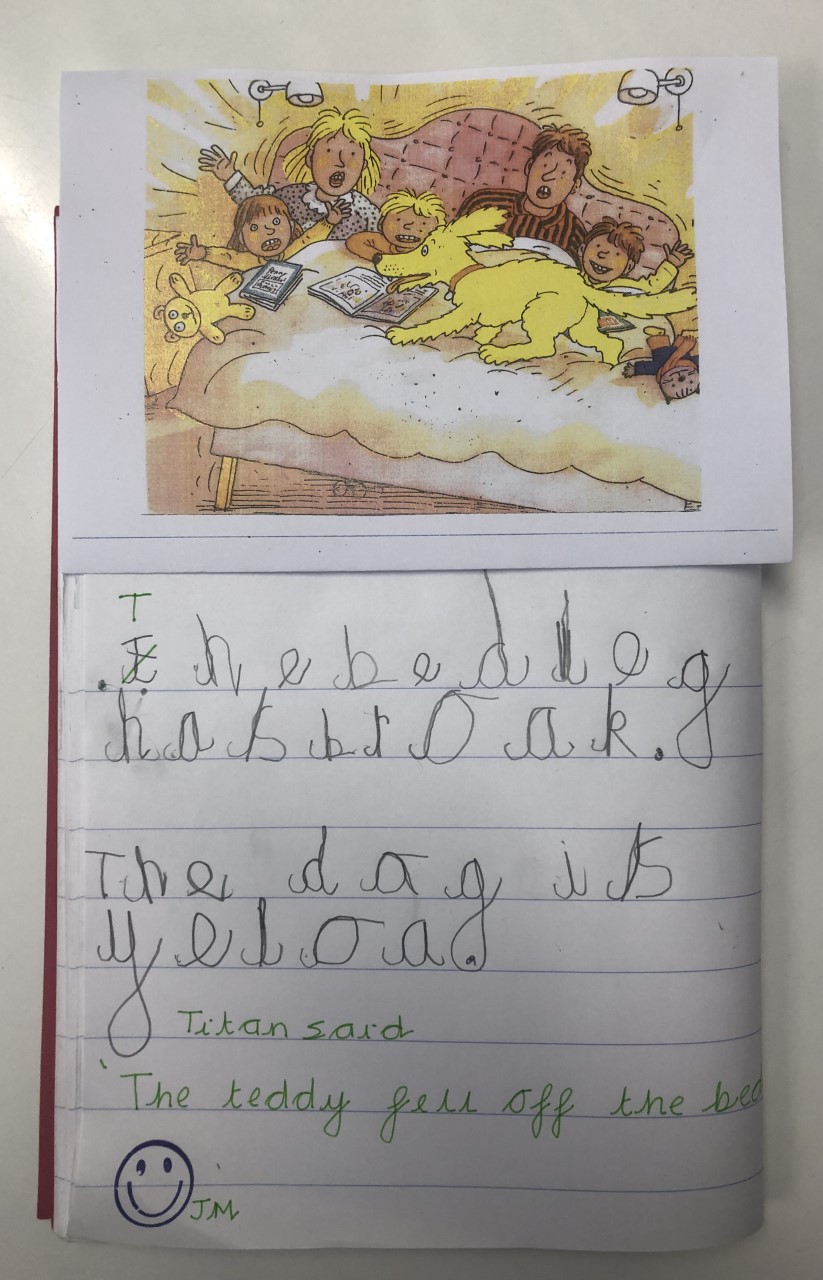 T
.Ihe bed leg
has broak.
The dog is
yeloa.
Titan said
'The teddy fell off the bed
JM